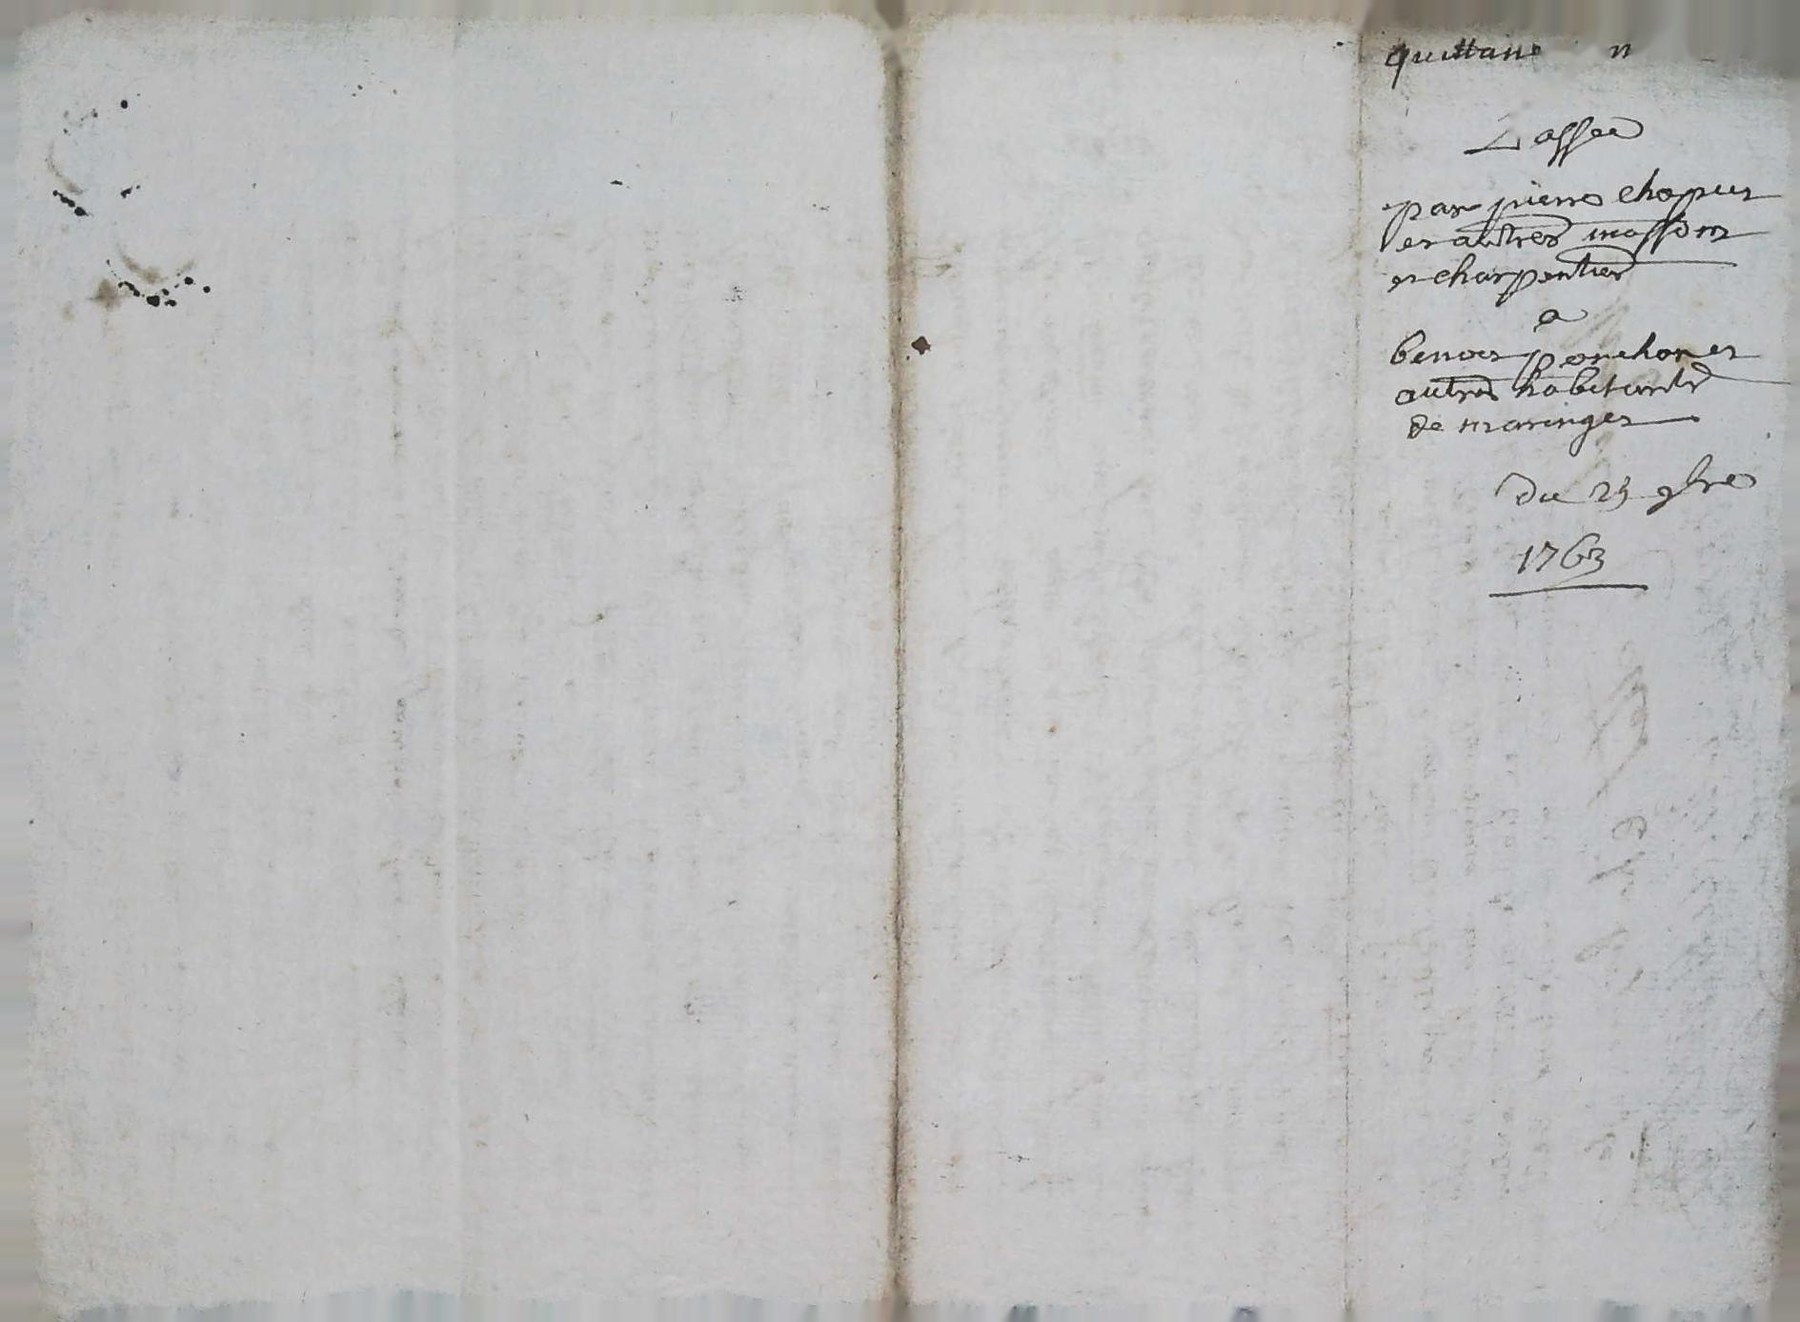 quittance n
Passée
par pierre chapuis
et autres massons
et charpentier
a
benoit ponchon et
autres habitants
de maringes
du 25 9bre
1763